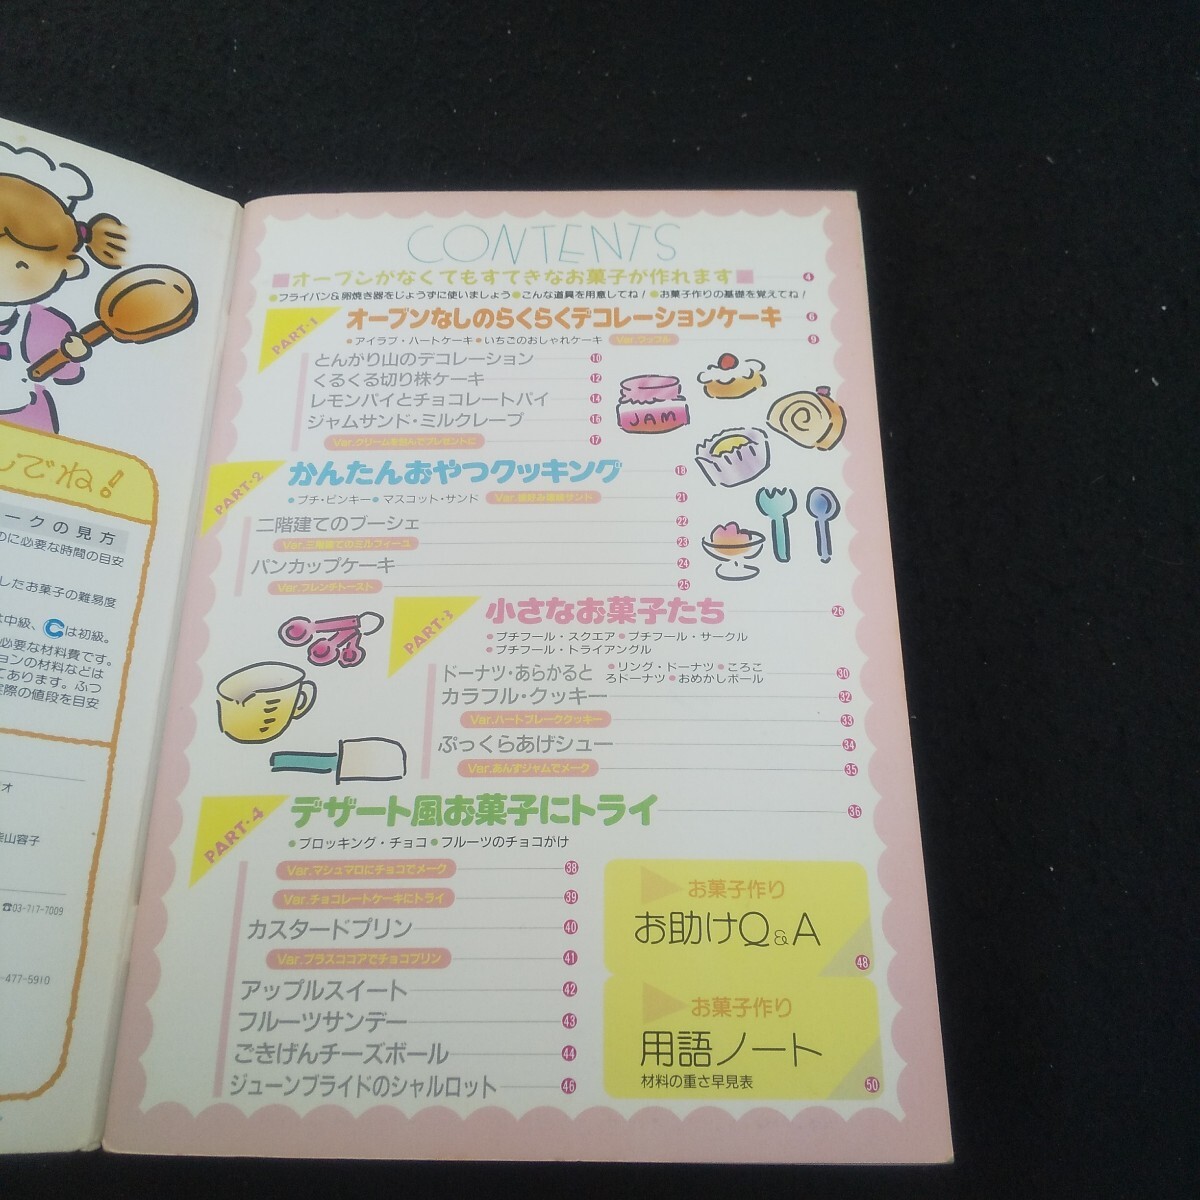 してね!
ークの見方
のに必要な時間の目安
したお菓子の難易度
は中級、Cは初級。
必要な材料費です。
ョンの材料などは
てあります。ふつ
実際の値段を目安
オ
柴山容子
☎03-717-7009
-477-5910
CONTENTS
■オーブンがなくてもすてきなお菓子が作れます■ 4
●フライパン&卵焼き器をじょうずに使いましょう●こんな道具を用意してね!●お菓子作りの基礎を覚えてね!
PART・1 オーブンなしのらくらくデコレーションケーキ 6
●アイラブ・ハートケーキ●いちごのおしゃれケーキ Var.ワッフル 9
とんがり山のデコレーション 10
くるくる切り株ケーキ 12
レモンパイとチョコレートパイ 14
ジャムサンド・ミルクレープ 16
Var.クリームを包んでプレゼントに 17
JAM
PART・2 かんたんおやつクッキング 18
●プチ・ピンキー●マスコット・サンド 21
二階建てのブーシェ 22
Var.三階建てのミルフィーユ 23
パンカップケーキ 24
Var.フレンチトースト 25
PART・3 小さなお菓子たち 26
●プチフール・スクエア●プチフール・サークル
●プチフール・トライアングル
ドーナツ・あらかると ●リング・ドーナツ●ころころドーナツ●おめかしボール 30
カラフル・クッキー 32
Var.ハートフレーククッキー 33
ぷっくらあげシュー 34
Var.あんずジャムでメーク 35
PART・4 デザート風お菓子にトライ 36
●ブロッキング・チョコ●フルーツのチョコがけ
Var.マシュマロにチョコでメーク 38
Var.チョコレートケーキにトライ 39
カスタードプリン 40
Var.プラスココアでチョコプリン 41
アップルスイート 42
フルーツサンデー 43
ごきげんチーズボール 44
ジューンブライドのシャルロット 46
お菓子作り
お助けQ&A 48
お菓子作り
用語ノート
材料の重さ早見表 50